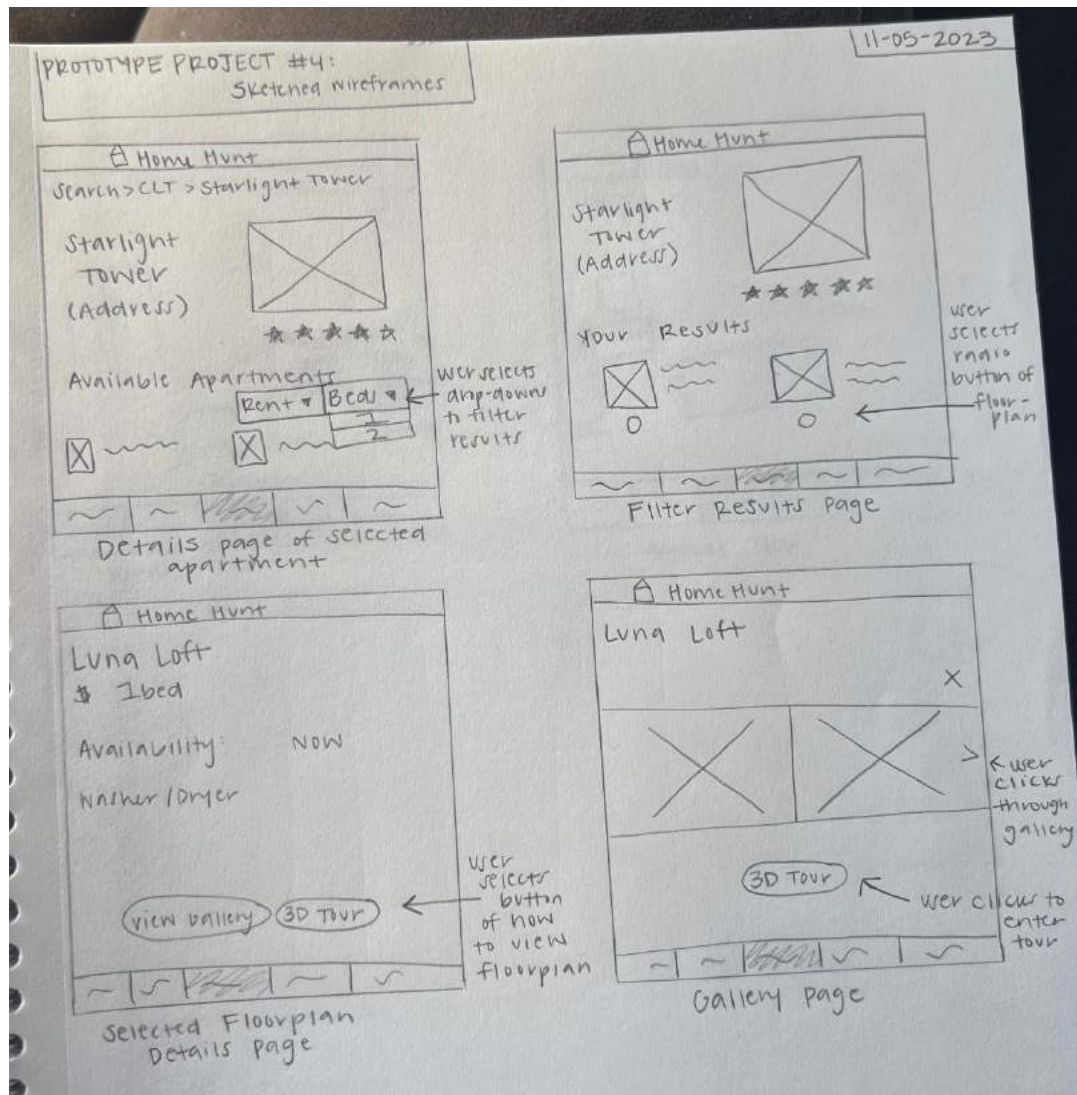 11-05-2023
PROTOTYPE PROJECT #4:
Sketched wireframes
Home Hunt
Search > CLT > Starlight Tower
Starlight
Tower
(Address)
Available Apartments
Rent ▾
Beds ▾
1
2
user selects
drop-down
to filter
results
Details page of selected
apartment
Home Hunt
Starlight
Tower
(Address)
Your Results
user
selects
radio
button of
floor-
plan
Filter Results Page
Home Hunt
Luna Loft
$ 1bed
Availability: NOW
Washer/Dryer
View Gallery
3D Tour
user
selects
button
of how
to view
floorplan
Selected Floorplan
Details Page
Home Hunt
Luna Loft
X
>
user
clicks
through
gallery
3D Tour
user clicks to
enter
tour
Gallery Page